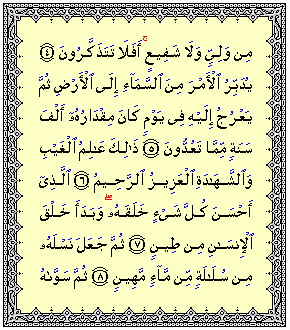 مِن وَلِيٍّ وَلَا شَفِيعٍ ۚ أَفَلَا تَتَذَكَّرُونَ ﴿٤﴾
يُدَبِّرُ ٱلْأَمْرَ مِنَ ٱلسَّمَآءِ إِلَى ٱلْأَرْضِ ثُمَّ
يَعْرُجُ إِلَيْهِ فِى يَوْمٍ كَانَ مِقْدَارُهُۥٓ أَلْفَ
سَنَةٍ مِّمَّا تَعُدُّونَ ﴿٥﴾ ذَٰلِكَ عَٰلِمُ ٱلْغَيْبِ
وَٱلشَّهَٰدَةِ ٱلْعَزِيزُ ٱلرَّحِيمُ ﴿٦﴾ ٱلَّذِىٓ
أَحْسَنَ كُلَّ شَىْءٍ خَلَقَهُۥ ۖ وَبَدَأَ خَلْقَ
ٱلْإِنسَٰنِ مِن طِينٍ ﴿٧﴾ ثُمَّ جَعَلَ نَسْلَهُۥ
مِن سُلَٰلَةٍ مِّن مَّآءٍ مَّهِينٍ ﴿٨﴾ ثُمَّ سَوَّىٰهُ